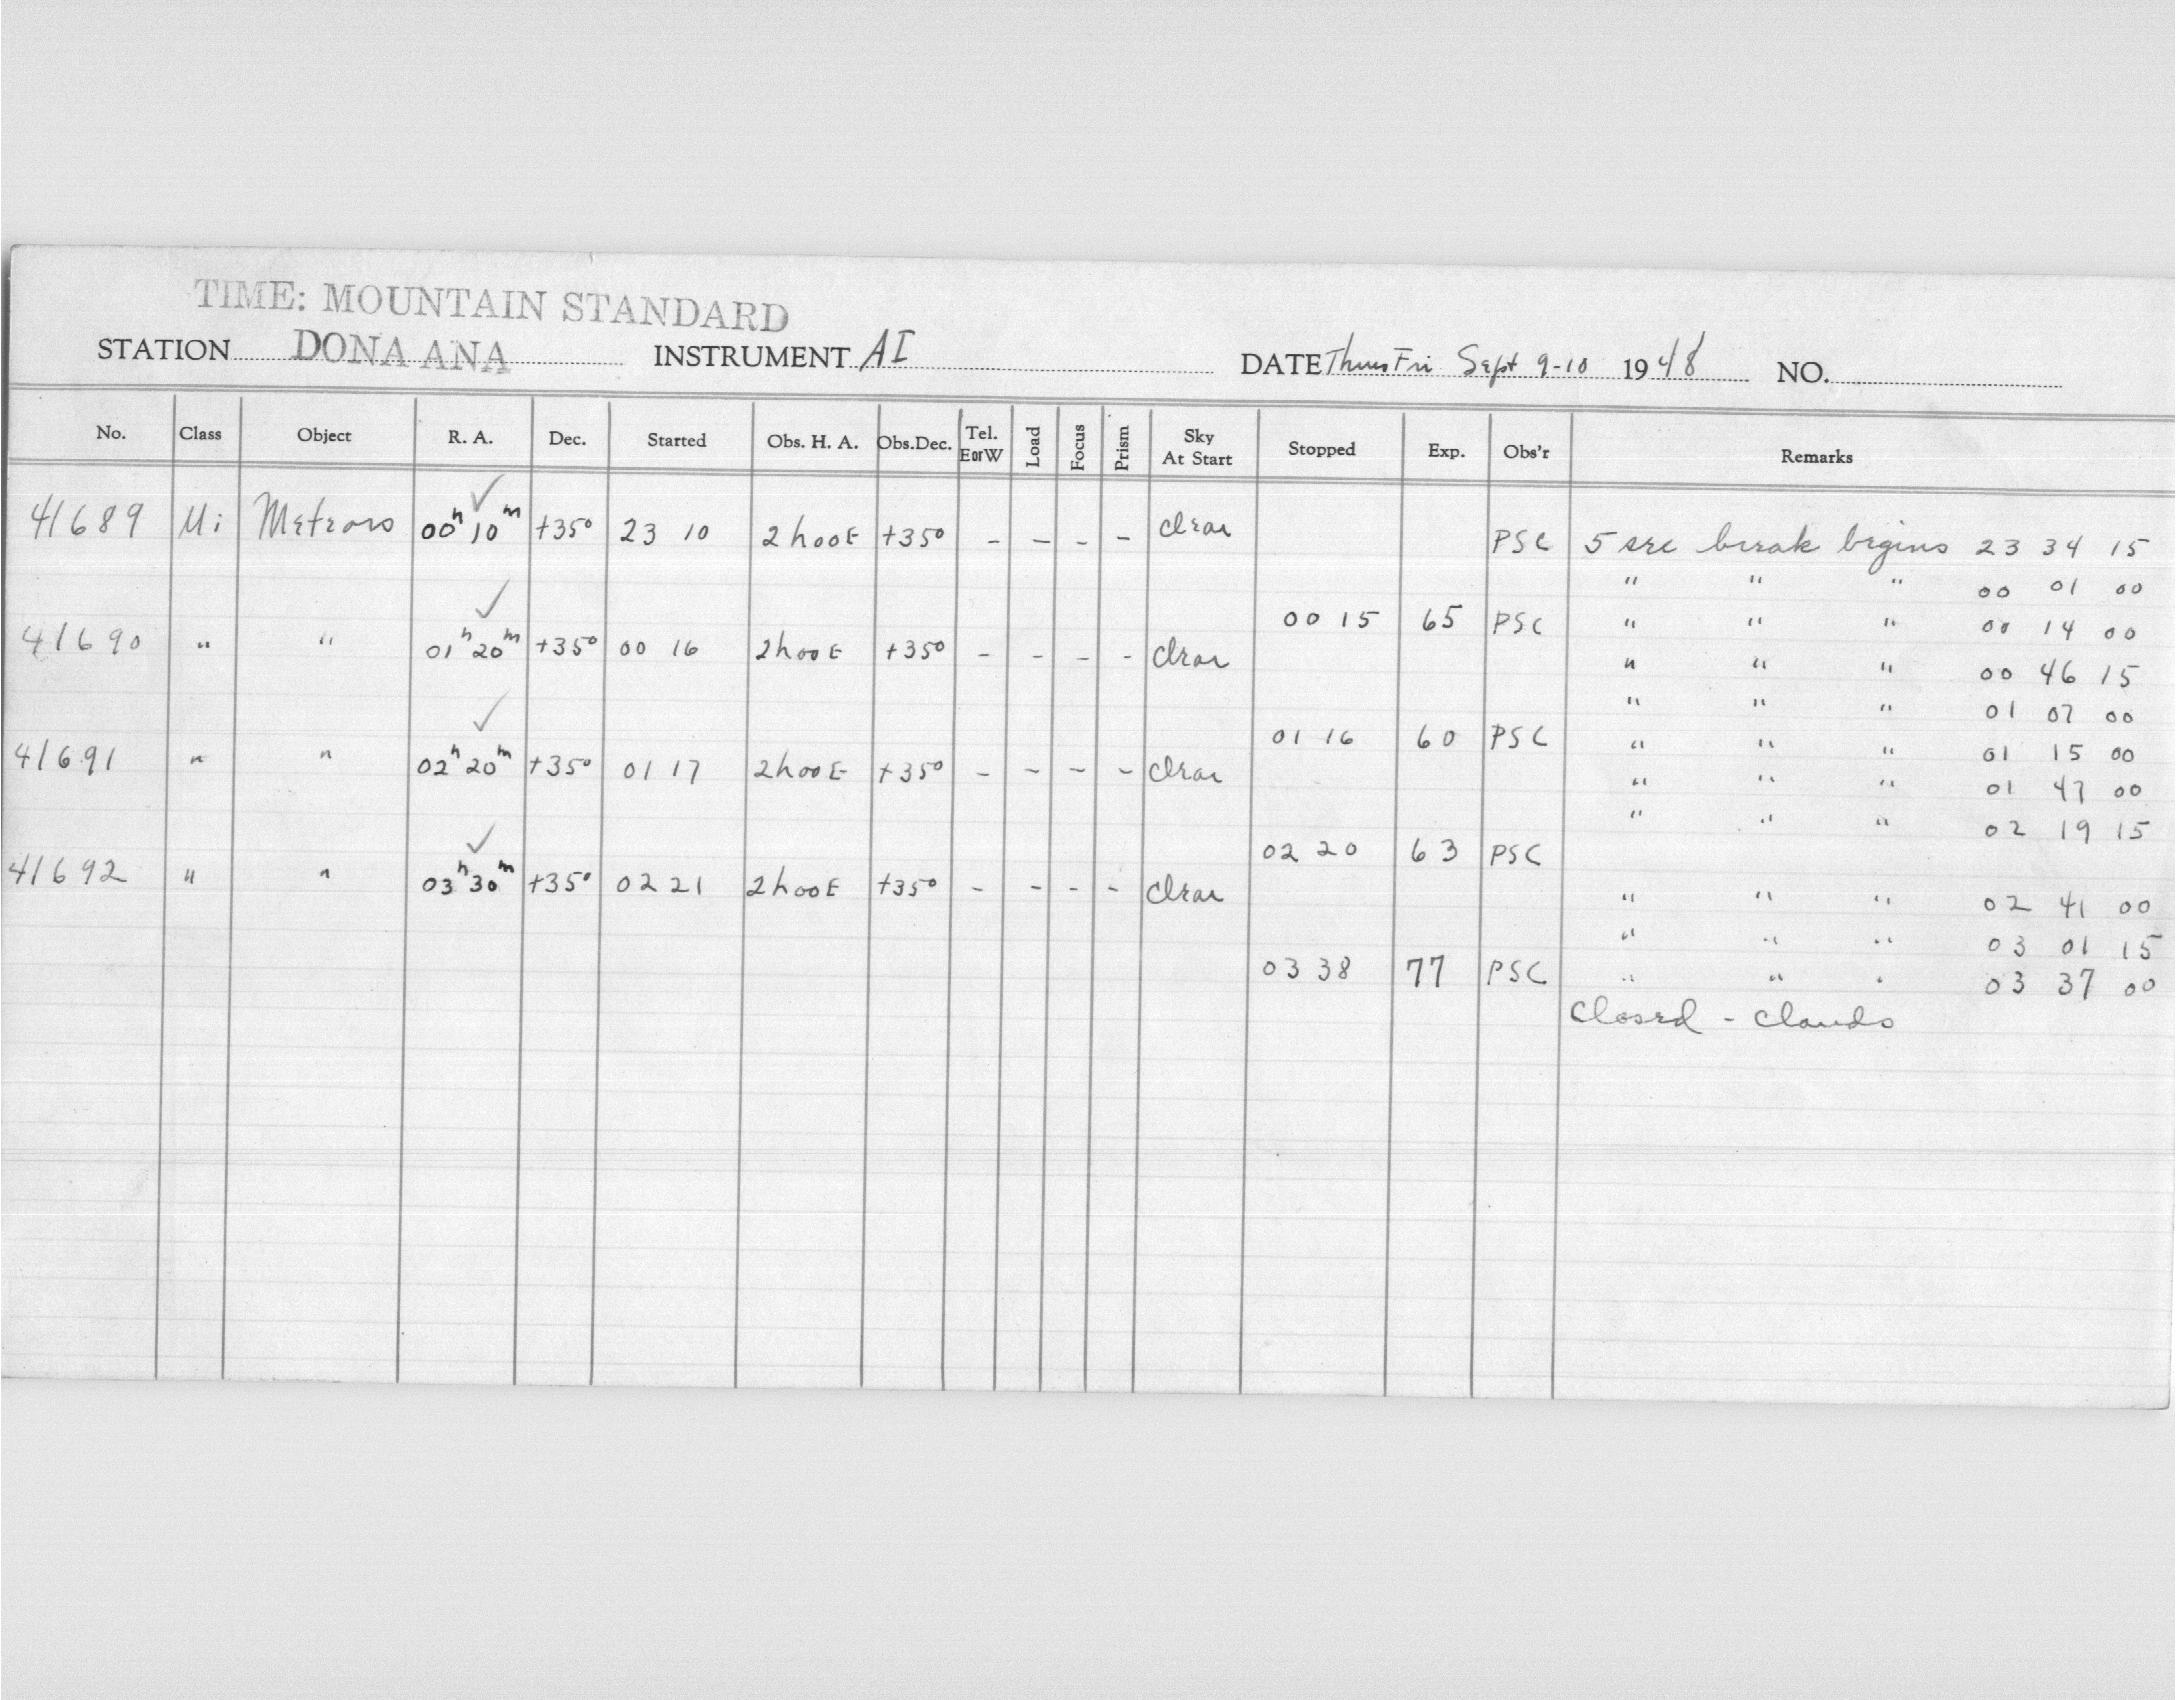 TIME: MOUNTAIN STANDARD
STATION DONA ANA INSTRUMENT AI DATE Thurs Fri Sept 9-10 1948 NO.
No. Class Object R. A. Dec. Started Obs. H. A. Obs.Dec. Tel. E or W Load Focus Prism Sky At Start Stopped Exp. Obs'r Remarks
41689 Mi Meteors 00h 10m +35° 23 10 2h00E +35° - - - - clear PSC 5 sec break begins 23 34 15
" " " 00 01 00
00 15 65 PSC " " " 00 14 00
41690 " " 01h 20m +35° 00 16 2h00E +35° - - - - clear " " " 00 46 15
" " " 01 07 00
01 16 60 PSC " " " 01 15 00
41691 " " 02h 20m +35° 01 17 2h00E +35° - - - - clear " " " 01 47 00
" " " 02 19 15
02 20 63 PSC
41692 " " 03h 30m +35° 02 21 2h00E +35° - - - - clear " " " 02 41 00
" " " 03 01 15
03 38 77 PSC " " " 03 37 00
Closed - clouds